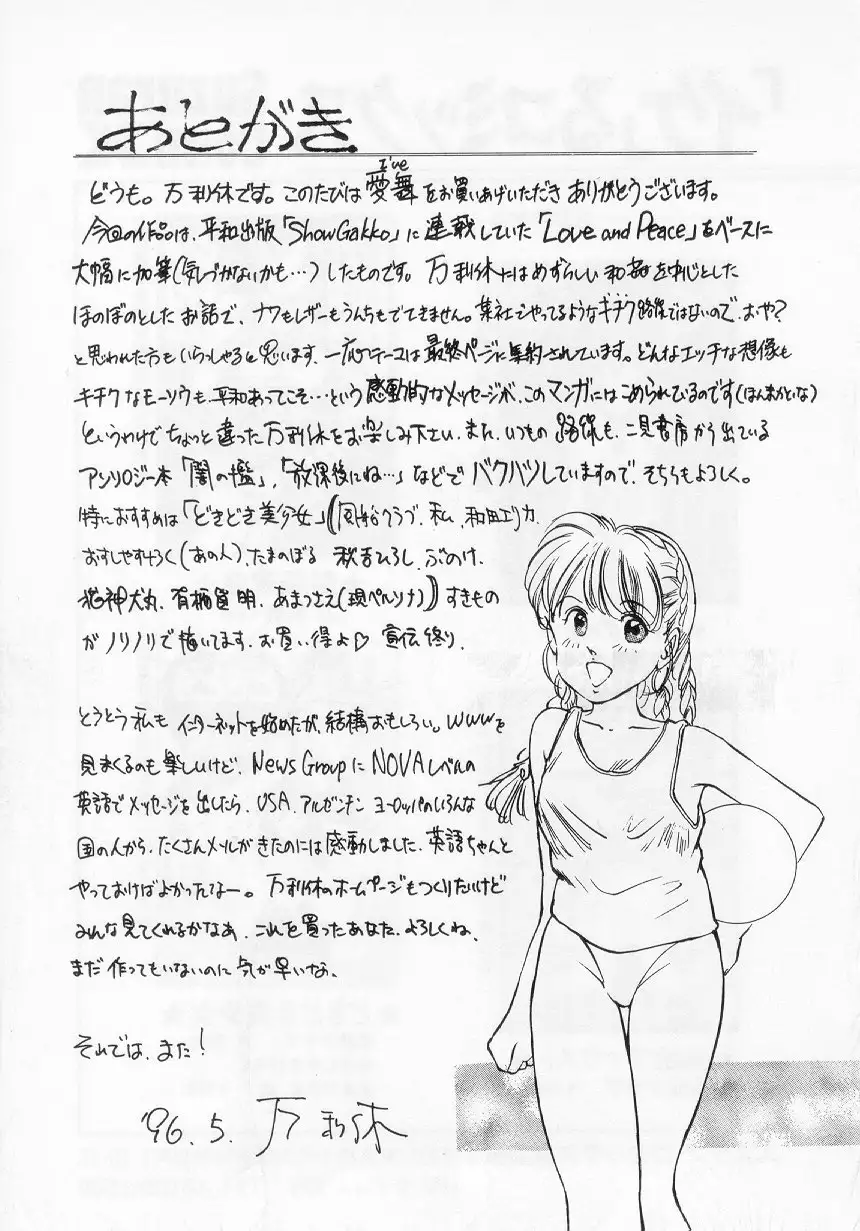 あとがき
I've
どうも。万利休です。このたびは愛舞をお買いあげいただきありがとうございます。
今回の作品は、平和出版「ShowGakko」に連載していた「Love and Peace」をベースに
大幅に加筆(気づかないかも…)したものです。万利休にはめずらしい和姦を中心とした
ほのぼのとしたお話で、ナワもレザーもうんちもでてきません。某社でやってるようなキチク路線ではないので、おや?
と思われた方もいらっしゃると思います、一応のテーマは最終ページに集約されています。どんなエッチな想像も
キチクなモーソウも、平和あってこそ…という感動的なメッセージが、このマンガにはこめられているのです(ほんまかいな)
というわけでちょっと違った万利休をお楽しみ下さい、また、いつもの路線も、二見書房から出ている
アンソロジー本「闇の檻」,「放課後にね…」などでバクハツしていますので、そちらもよろしく。
特におすすめは「どきどき美少女」((風船クラブ、私、和田エリカ、
おすしやすろく(あの人)、たまのぼる 秋吉ひろし、ぶのけ、
猫神犬丸、有柄置明、あまつさえ(現ペルソナ))すきもの
がノリノリで描いてます、お買い得よ♡ 宣伝終り、
とうとう私もインターネットを始めたが、結構おもしろい。WWWを
見まくるのも楽しいけど、News GroupにNOVAレベルの
英語でメッセージを出したら、USA、アルゼンチン ヨーロッパのいろんな
国の人から、たくさんメールがきたのには感動しました、英語ちゃんと
やっておけばよかったなー。万利休のホームページもつくりたいけど
みんな見てくれるかなあ、これを買ったあなた、よろしくね、
まだ作ってもいないのに気が早いな、
それでは、また!
'96.5. 万利休